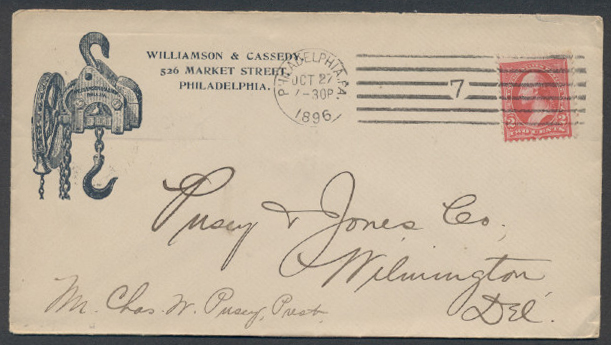 WILLIAMSON & CASSEDY,
526 MARKET STREET,
PHILADELPHIA.
PHILADELPHIA, PA.
OCT 27
7-30P
1896
7
2 TWO CENTS 2
Pusey & Jones Co,
Wilmington
Del.
Mr. Chas. W. Pusey, Prest.